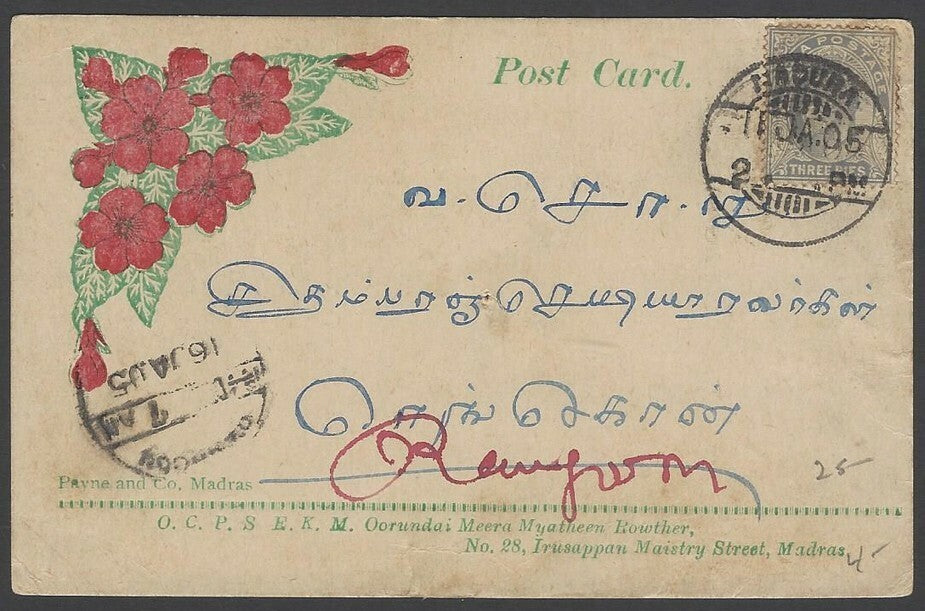 Post Card.
A POSTAGE
THREE PIES
MADURA
11 JA.05
2 PM
வ.சொ.ரு
சிதம்பரஞ்செட்டியாரவர்கள்
ரெங்கொன்
Rangoon
25
16 JA 05
7 AM
Payne and Co, Madras
O. C. P. S E. K. M. Oorundai Meera Myatheen Rowther,
No. 28, Irusappan Maistry Street, Madras